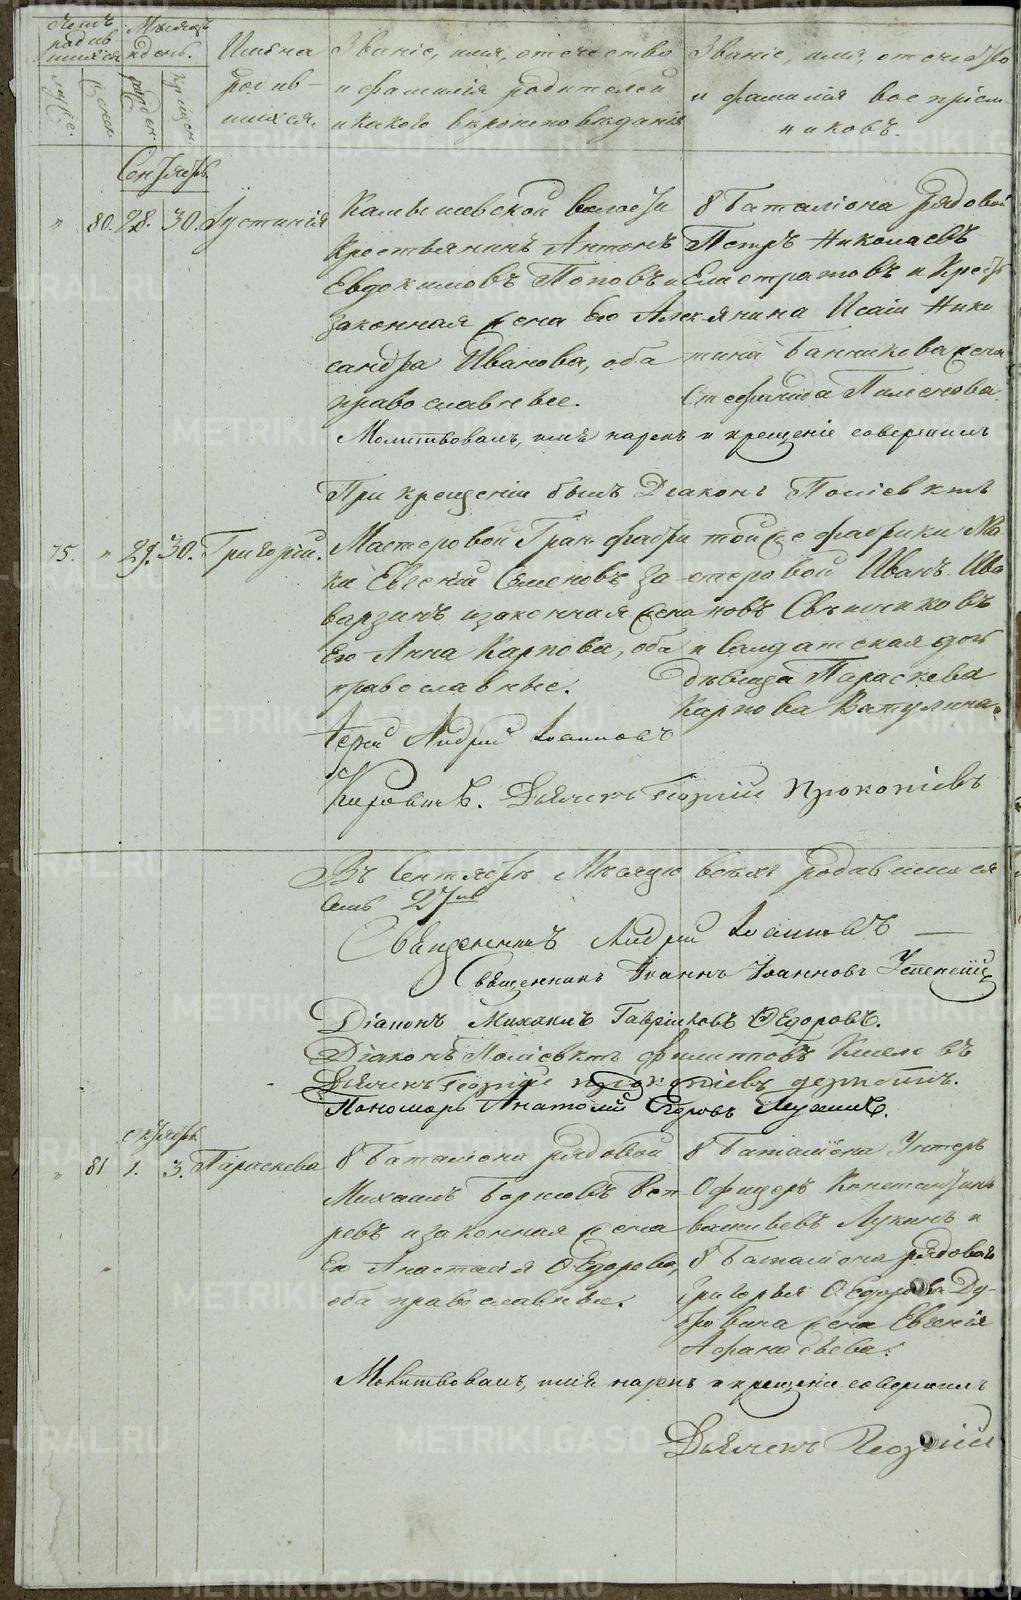 Счетъ родившихся.
Мѣсяцъ и день.
Имена родившихся.
Званіе, имя, отчество и фамилія родителей и какого вѣроисповѣданія
Званіе, имя, отчество и фамилія воспріемниковъ.
Мужес.
Женск.
рожден.
крещен.
Сентябрь.
" 80. 28. 30. Іустинія
Камышевской волости
крестьянинъ Антонъ
Евдокимовъ Поповъ и
законная жена его Алек-
сандра Иванова, оба
православные.
8 Баталіона рядовой
Петръ Николаевъ
Елистратовъ и крест
янина Исаіи Ники
тина Банникова жена
Пименова.
Молитвовалъ, имя нарекъ и крещеніе совершилъ
При крещеніи былъ Діаконъ Поліевктъ
75. " 29. 30. Григорій.
Мастеровой Гран. фабри
ки Евгеній Семеновъ За
варзинъ и законная жена
его Анна Карпова, оба
православные.
той же фабрики Ма
стеровой Иванъ Ива
новъ Свѣшниковъ
и солдатская дочь
дѣвица Параскева
Карпова Ватулина.
Іерей Андрей Іоанновъ
Дьячекъ Георгій Прокопіевъ
Въ Сентябрѣ Мѣсяцѣ всѣхъ родившихся
27
Священникъ Андрей Іоанновъ
Священникъ Іоаннъ Іоанновъ Успенскій
Діаконъ Михаилъ Гавриловъ Ѳедоровъ.
Діаконъ Поліевктъ Филипповъ
Дьячекъ Георгій Прокопіевъ
Пономарь Анатолій Егоровъ
Октябрь.
" 81 1. 3. Параскева
8 Баталіона рядовой
Михаилъ Борисовъ
ревъ и законная жена
Его Анастасія Ѳедорова,
оба православные.
8 Баталіона Унтеръ
Офицеръ Константинъ
Лукинъ и
8 Баталіона рядоваго
Григорья Ѳедорова Ду-
бровина жена Евгенія
Афанасьева.
Молитвовалъ, имя нарекъ и крещеніе совершилъ
Дьячекъ Георгій
METRIKI.GASO-URAL.RU